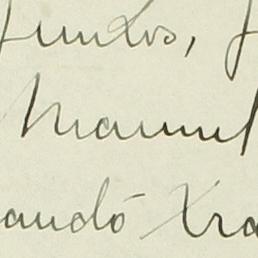 juntos,
Manuel
andó Xra